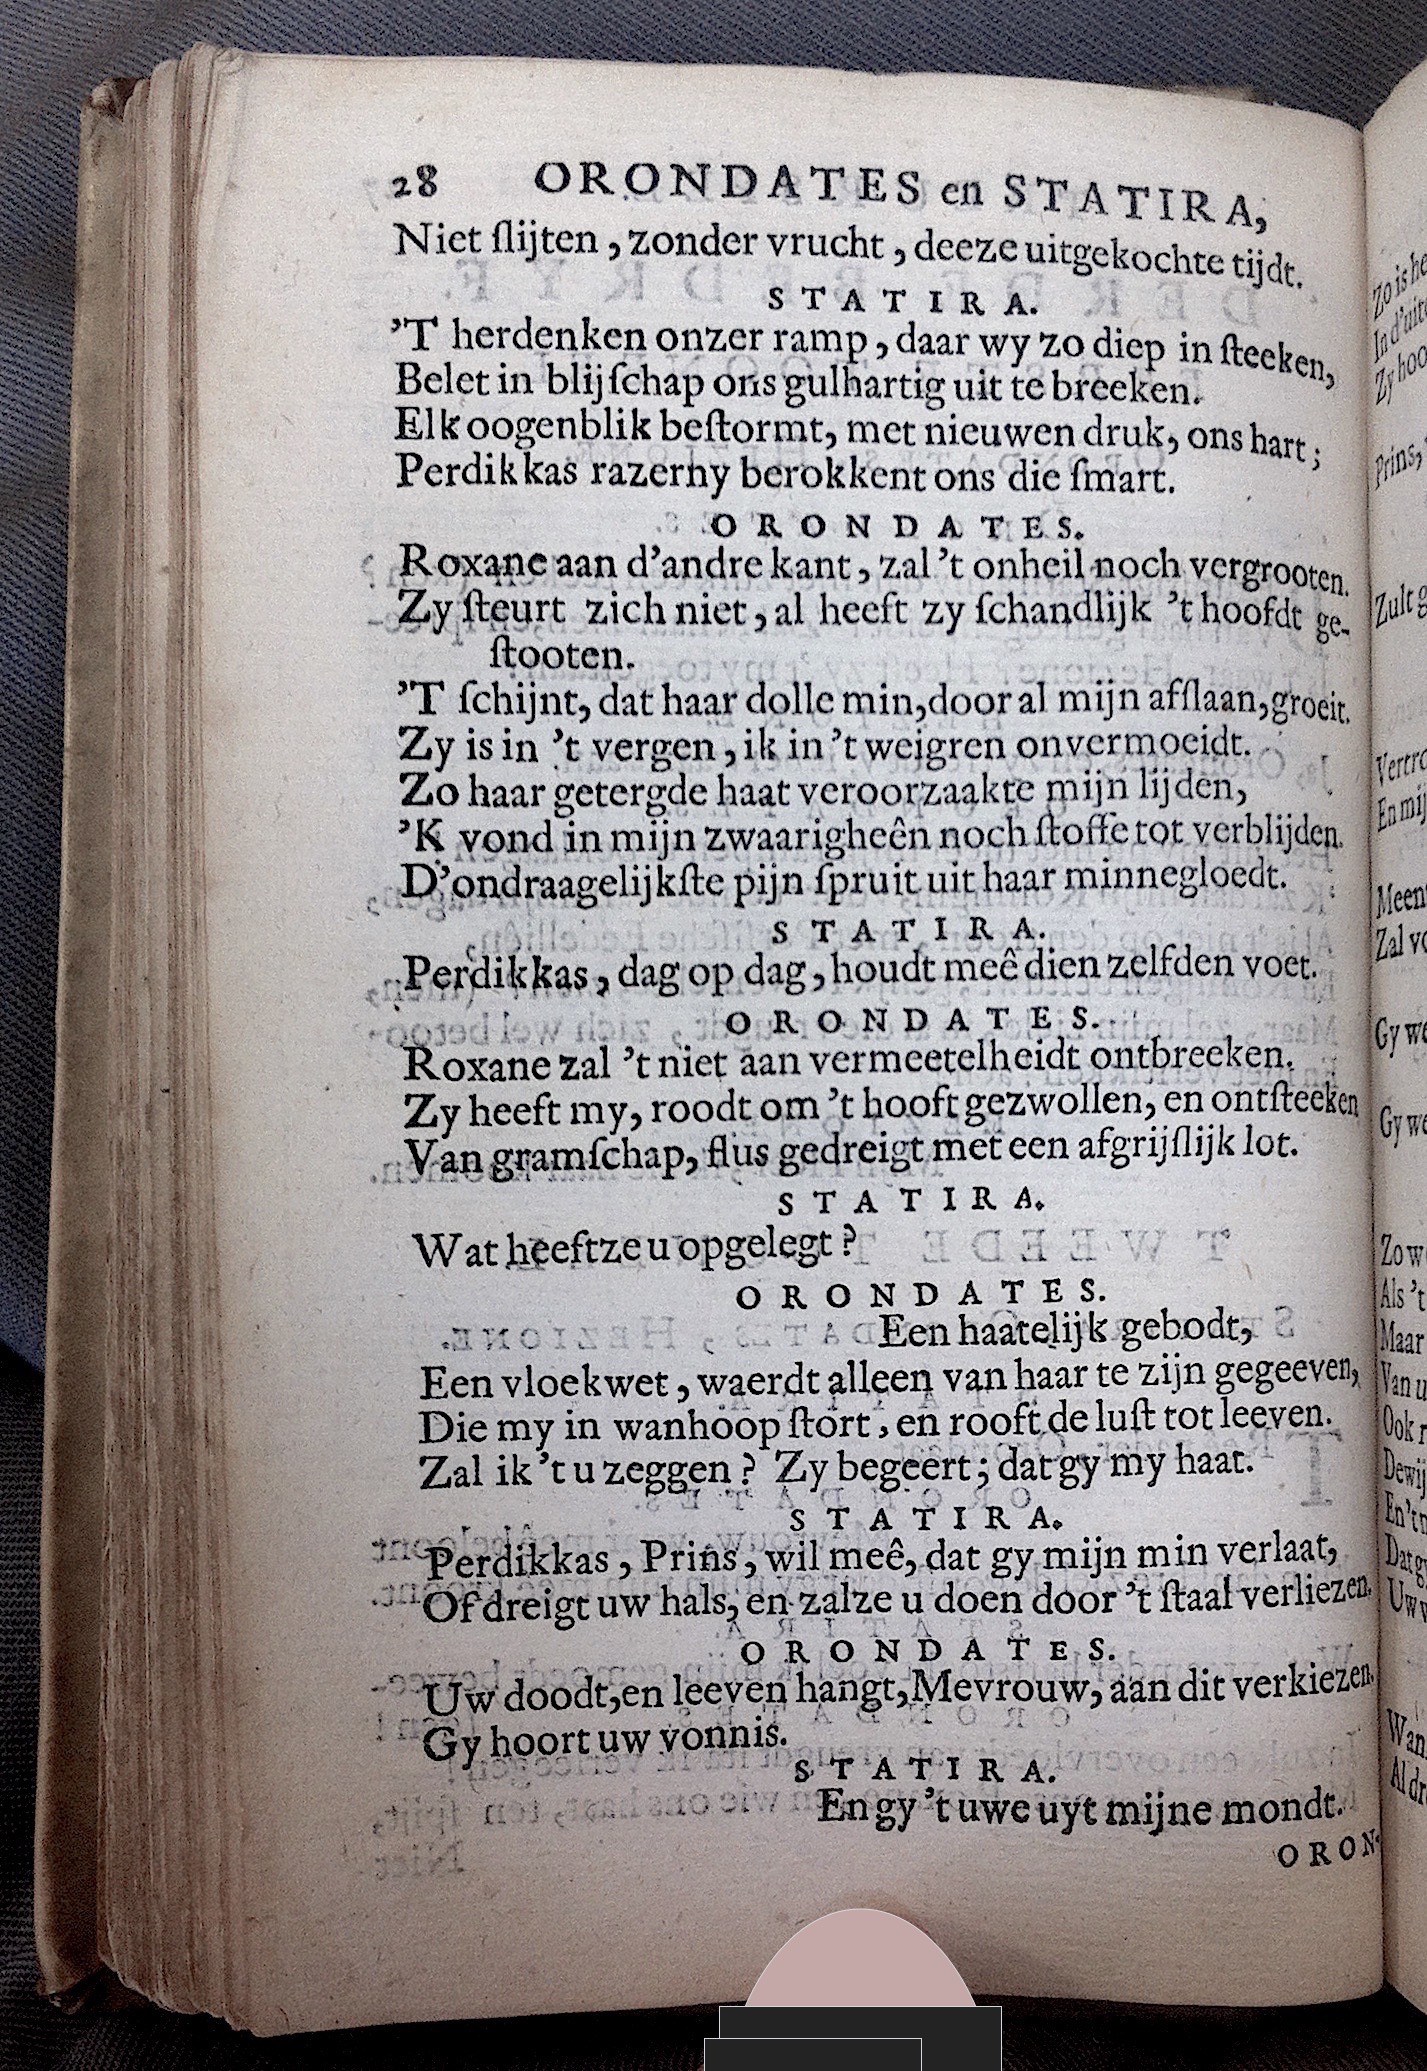 28 ORONDATES en STATIRA,
Niet ſlijten, zonder vrucht, deeze uitgekochte tijdt.
STATIRA.
'T herdenken onzer ramp, daar wy zo diep in ſteeken,
Belet in blijſchap ons gulhartig uit te breeken.
Elk oogenblik beſtormt, met nieuwen druk, ons hart;
Perdikkas razerny berokkent ons die ſmart.
ORONDATES.
Roxane aan d'andre kant, zal 't onheil noch vergrooten.
Zy ſteurt zich niet, al heeft zy ſchandlijk 't hoofdt ge-
ſtooten.
'T ſchijnt, dat haar dolle min, door al mijn afſlaan, groeit.
Zy is in 't vergen, ik in 't weigren onvermoeidt.
Zo haar getergde haat veroorzaakte mijn lijden,
'K vond in mijn zwaarigheên noch ſtoffe tot verblijden.
D'ondraagelijkſte pijn ſpruit uit haar minnegloedt.
STATIRA.
Perdikkas, dag op dag, houdt meê dien zelfden voet.
ORONDATES.
Roxane zal 't niet aan vermeetelheidt ontbreeken.
Zy heeft my, roodt om 't hooft gezwollen, en ontſteeken
Van gramſchap, flus gedreigt met een afgrijſlijk lot.
STATIRA.
Wat heeftze u opgelegt?
ORONDATES.
Een haatelijk gebodt,
Een vloekwet, waerdt alleen van haar te zijn gegeeven,
Die my in wanhoop ſtort, en rooft de luſt tot leeven.
Zal ik 't u zeggen? Zy begeert; dat gy my haat.
STATIRA.
Perdikkas, Prins, wil meê, dat gy mijn min verlaat,
Of dreigt uw hals, en zalze u doen door 't ſtaal verliezen.
ORONDATES.
Uw doodt, en leeven hangt, Mevrouw, aan dit verkiezen.
Gy hoort uw vonnis.
STATIRA.
En gy 't uwe uyt mijne mondt.
ORON-